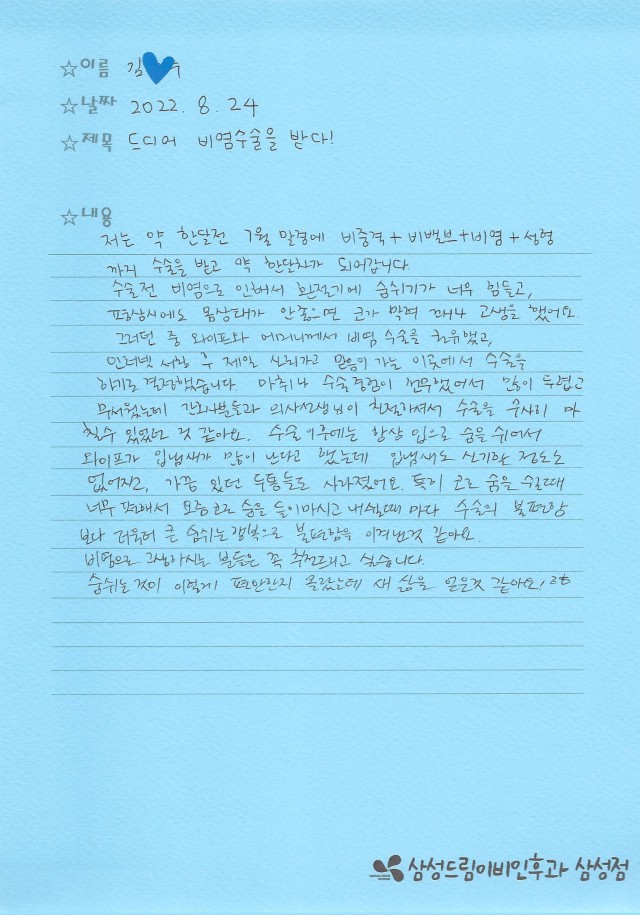 ☆이름 김 수
☆날짜 2022. 8. 24
☆제목 드디어 비염수술을 받다!
☆내용
저는 약 한달전 7월 말경에 비중격+비밸브+비염+성형
까지 수술을 받고 약 한단차가 되어갑니다.
수술전 비염으로 인해서 환절기에 숨쉬기가 너무 힘들고,
평상시에도 몸상태가 안좋으면 코가 막혀 꽤나 고생을 했어요.
그러던 중 와이프와 어머니께서 비염 수술을 권유했고,
인터넷 서칭 후 제일 신뢰가고 믿음이 가는 이곳에서 수술을
하기로 결정했습니다. 마취나 수술경험이 전무했어서 많이 두렵고
무서웠는데 간호사분들과 의사선생님이 친절하셔서 수술을 무사히 마
칠수 있었던 것 같아요. 수술이후에는 항상 입으로 숨을 쉬어서
와이프가 입냄새가 많이 난다고 했는데 입냄새도 신기할 정도로
없어지고, 가끔 있던 두통들도 사라졌어요. 특히 코로 숨을 쉴때
너무 편해서 요즘 코로 숨을 들이마시고 내쉴때 마다 수술의 불편함
보다 더욱더 큰 숨쉬는 행복으로 불편함을 이겨낸것 같아요.
비염으로 고생하시는 분들은 꼭 추천드리고 싶습니다.
숨쉬는것이 이렇게 편안한지 몰랐는데 새 삶을 얻은것 같아요!
삼성드림이비인후과 삼성점